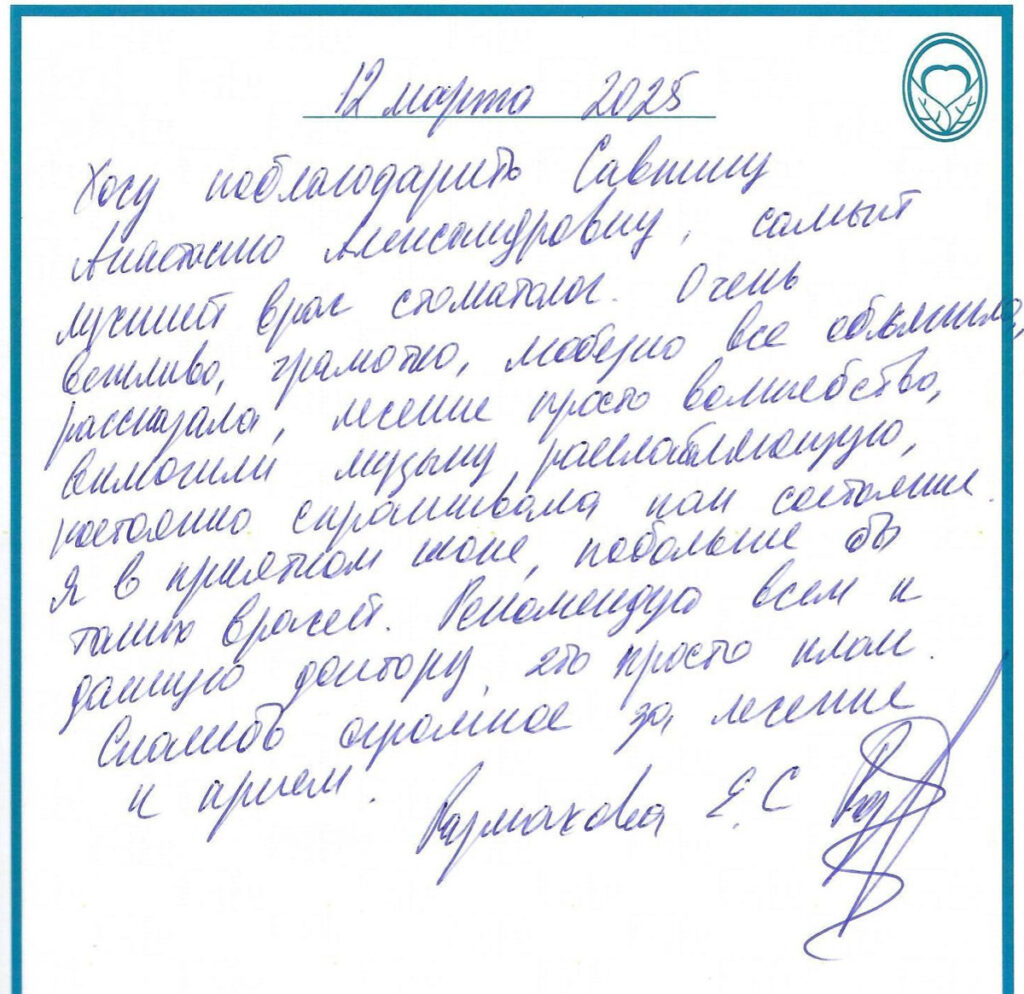 12 марта 2025
Хочу поблагодарить
Анастасию Александровну, самый
лучший врач стоматолог. Очень
вежливо, грамотно, любезно все объяснила,
рассказала, лечение просто волшебство,
включили музыку расслабляющую,
постоянно спрашивала как состояние.
Я в приятном шоке, побольше бы
таких врачей. Рекомендую всем к
данному доктору, это просто клад.
Спасибо огромное за лечение
и прием.
Е.С